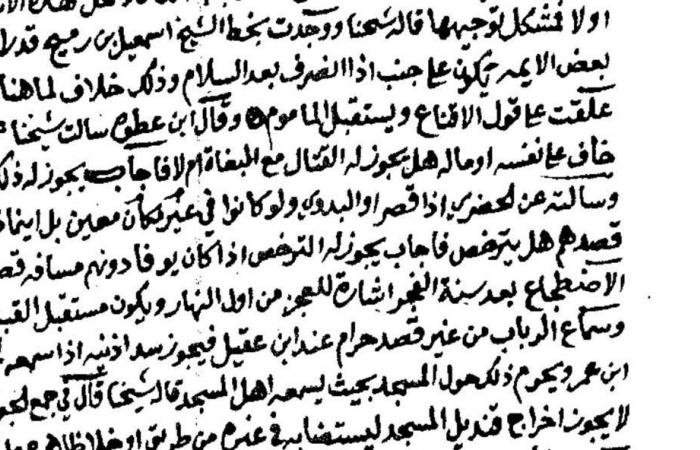 اولا فمشكل توجيهها قاله شيخنا ووجدت بخط الشيخ اسمعيل بن رميح قدرا
بعض الايمه يكون على جنب اذا انصرف بعد السلام وذلك خلاف لما هنا
علقت على قول الاقناع ويستقبل الماموم وقال ابن عطوه سالت شيخنا
خاف على نفسه او ماله هل يجوز له القتال مع البغاة ام لا فاجاب يجوز له ذلك
وسالته عن الحضري اذا قصر او البدوي ولو كانوا في غير مكان معين بل اينما
قصدهم هل يترخص فاجاب يجوز له الترخص اذا كان يوفا دونهم مسافه قصر
الاضطجاع بعد سنة الفجر اشارة للعجز من اول النهار ويكون مستقبل القب
وسماع الرباب من غير قصد حرام عند ابن عقيل فيجوز سد اذنيه اذا سمعه
ابن عمر ويحرم ذلك حول المسجد بحيث يسمعه اهل المسجد قاله شيخنا قال في جمع الجو
لا يجوز اخراج قنديل المسجد ليستضا به في غيره من طريق او خلا ظاهره